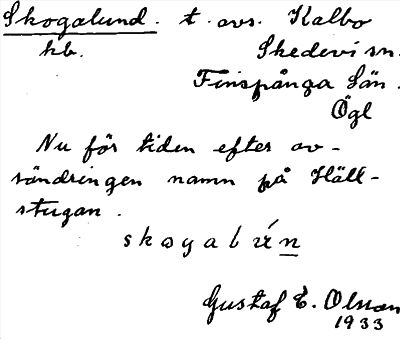 Skogalund. t. avs. Kalbo
hb. Skedevi sn.
Finspånga län.
Ögl
Nu för tiden efter av-
söndringen namn på Häll-
stugan.
skogab
Gustaf E. Olsson
1933